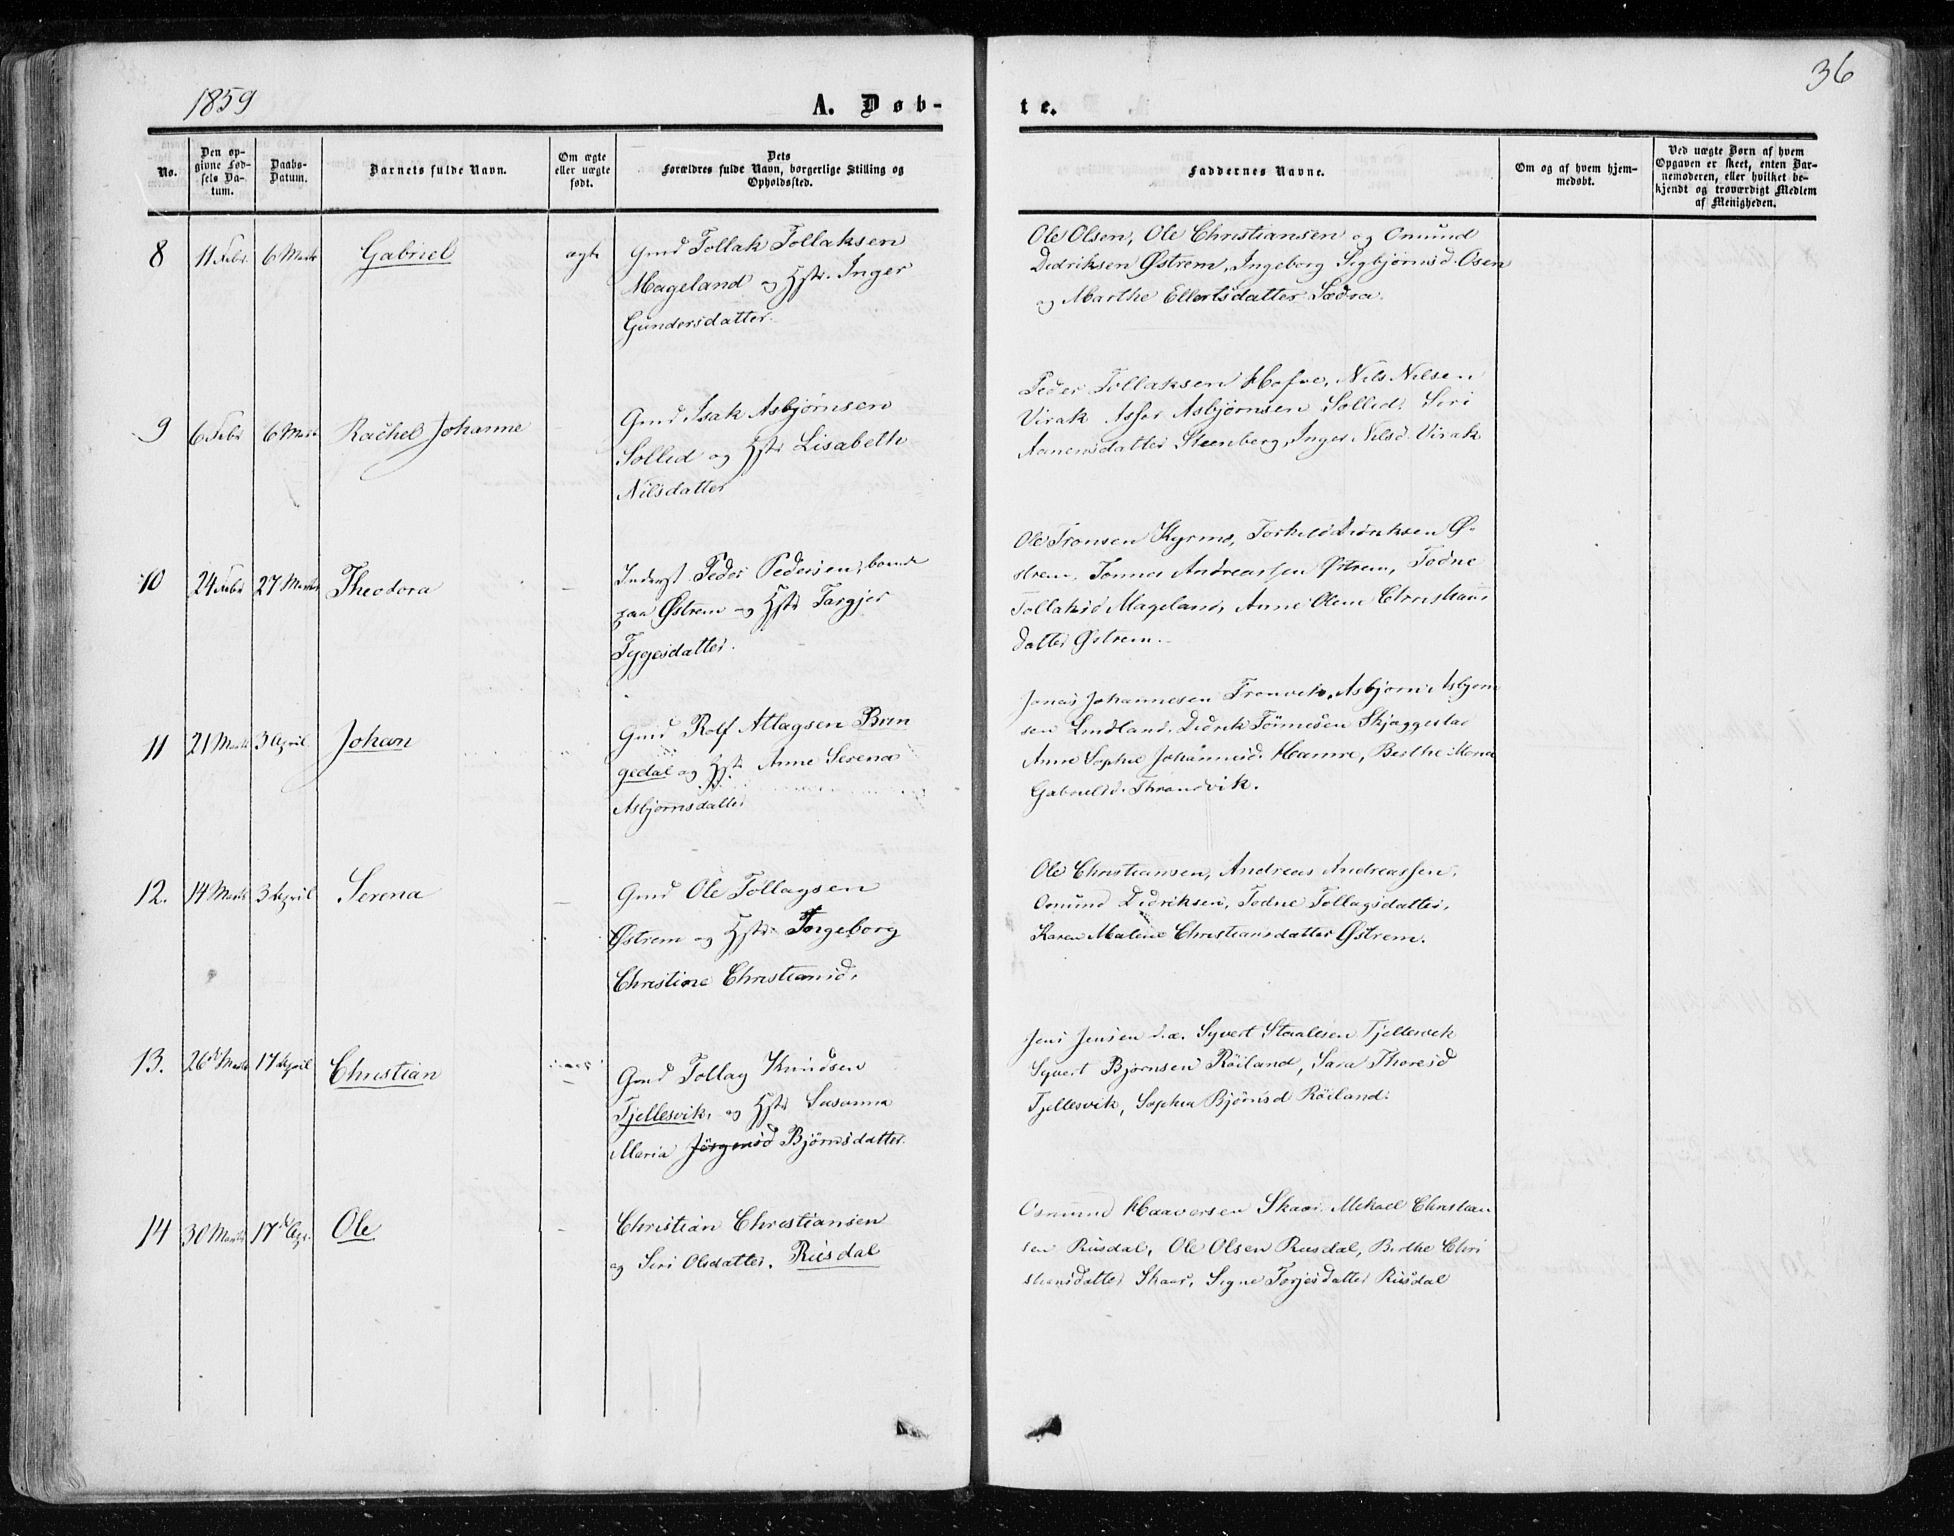 1859
A. Døb-
te.
36
No.
Den op-
givne Fød-
sels Da-
tum.
Daabs-
Datum.
Barnets fulde Navn.
Om ægte
eller uægte
født.
Dets
Forældres fulde Navn, borgerlige Stilling og
Opholdssted.
Faddernes Navne.
Om og af hvem hjem-
medøbt.
Ved uægte Børn af hvem
Opgaven er skeet, enten Bar-
nemoderen, eller hvilket be-
kjendt og troværdigt Medlem
af Menigheden.
8
11 Febr
6 Marts
Gabriel
ægte
Gmd Tollak Tollaksen
Mageland og Hstr. Inger
Gundersdatter.
Ole Olsen, Ole Christiansen og Omund
Dedriksen Østrem, Ingeborg Sigbjørnsd. Osen
og Marthe Ellertsdatter Sædra.
9
6 Febr
6 Marts
Rachel Johanne
Gmd Isak Asbjørnsen
Sollid og Hstr Lisabeth
Nilsdatter
Peder Tollaksen Hofve, Nils Nilsen
Virak Asser Asbjørnsen Sollid, Seri
Aanensdatter Steenberg, Inger Nilsd. Virak
10
24 Febr
27 Marts
Theodora
Inderst Peder Pedersen, boende
paa Østrem og Hstr Targjer
Tygesdatter.
Ole Tronsen Kyrmo, Torkild Didriksen Ø-
strem, Tønnes Andreassen Østrem, Todne
Tollaksd Mageland, Anne Olene Christians
datter Østrem.
11
21 Marts
3 April
Johan
Gmd Rolf Atlagsen Brin
gedal og Hstr. Anne Serena
Asbjørnsdatter
Jonas Johannesen Tronvik, Asbjørn Asbjørn
sen Lindland, Didrik Tønnesen Skjæggestad
Anne Sophie Johannesd. Hamre, Berthe Maria
Gabrielsd. Thrandvik.
12.
14 Marts
3 April
Serena
Gmd Ole Tollagsen
Østrem og Hstr. Ingeborg
Christine Christiansd.
Ole Christiansen, Andreas Andreassen,
Omund Didriksen, Todne Tollagsdatter,
Karen Malene Christiansdatter Østrem.
13.
26de Marts
17 April
Christian
Gmd Tollag Knudsen
Tjellesvik, og Hstr Susanna
Maria Jørgensd Bjørnsdatter.
Jens Jensen d.æ. Syvert Staalesen Tjellesvik
Syvert Bjørnsen Röiland, Sara Thoresd
Tjellesvik, Sophia Bjørnsd Röiland.
14
30 Marts
17de Apr.
Ole
Christian Christiansen
og Seri Olsdatter. Rusdal
Osmund Haaversen Skaar, Mikael Christian
sen Rusdal, Ole Olsen Rusdal, Berthe Chri
stiansdatter Skaar, Signe Torjesdatter Rusdal